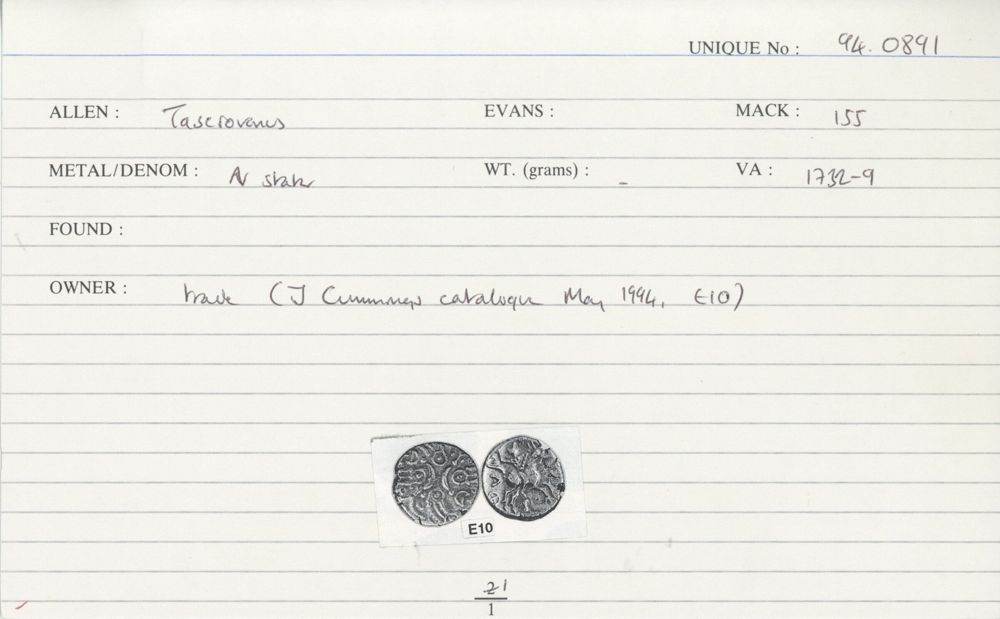 UNIQUE No : 94. 0891
ALLEN : Tasciovanus EVANS : MACK : 155
METAL/DENOM : AV stater WT. (grams) : - VA : 1732-9
FOUND :
OWNER : trade (J Cummings catalogue May 1994, E10)
E10
21
1